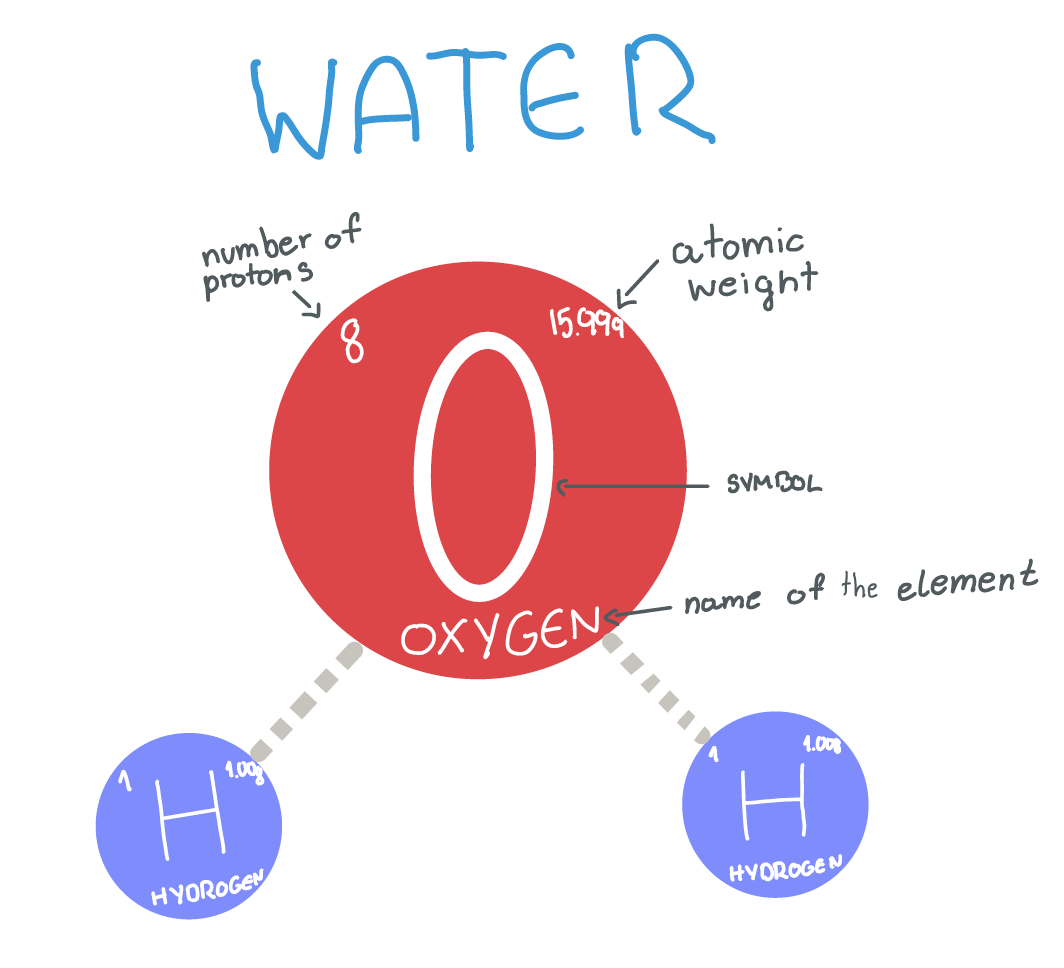 WATER
number of
protons
atomic
weight
8
15.999
O
SYMBOL
OXYGEN
name of the element
1
1.008
H
HYDROGEN
1
1.008
H
HYDROGEN